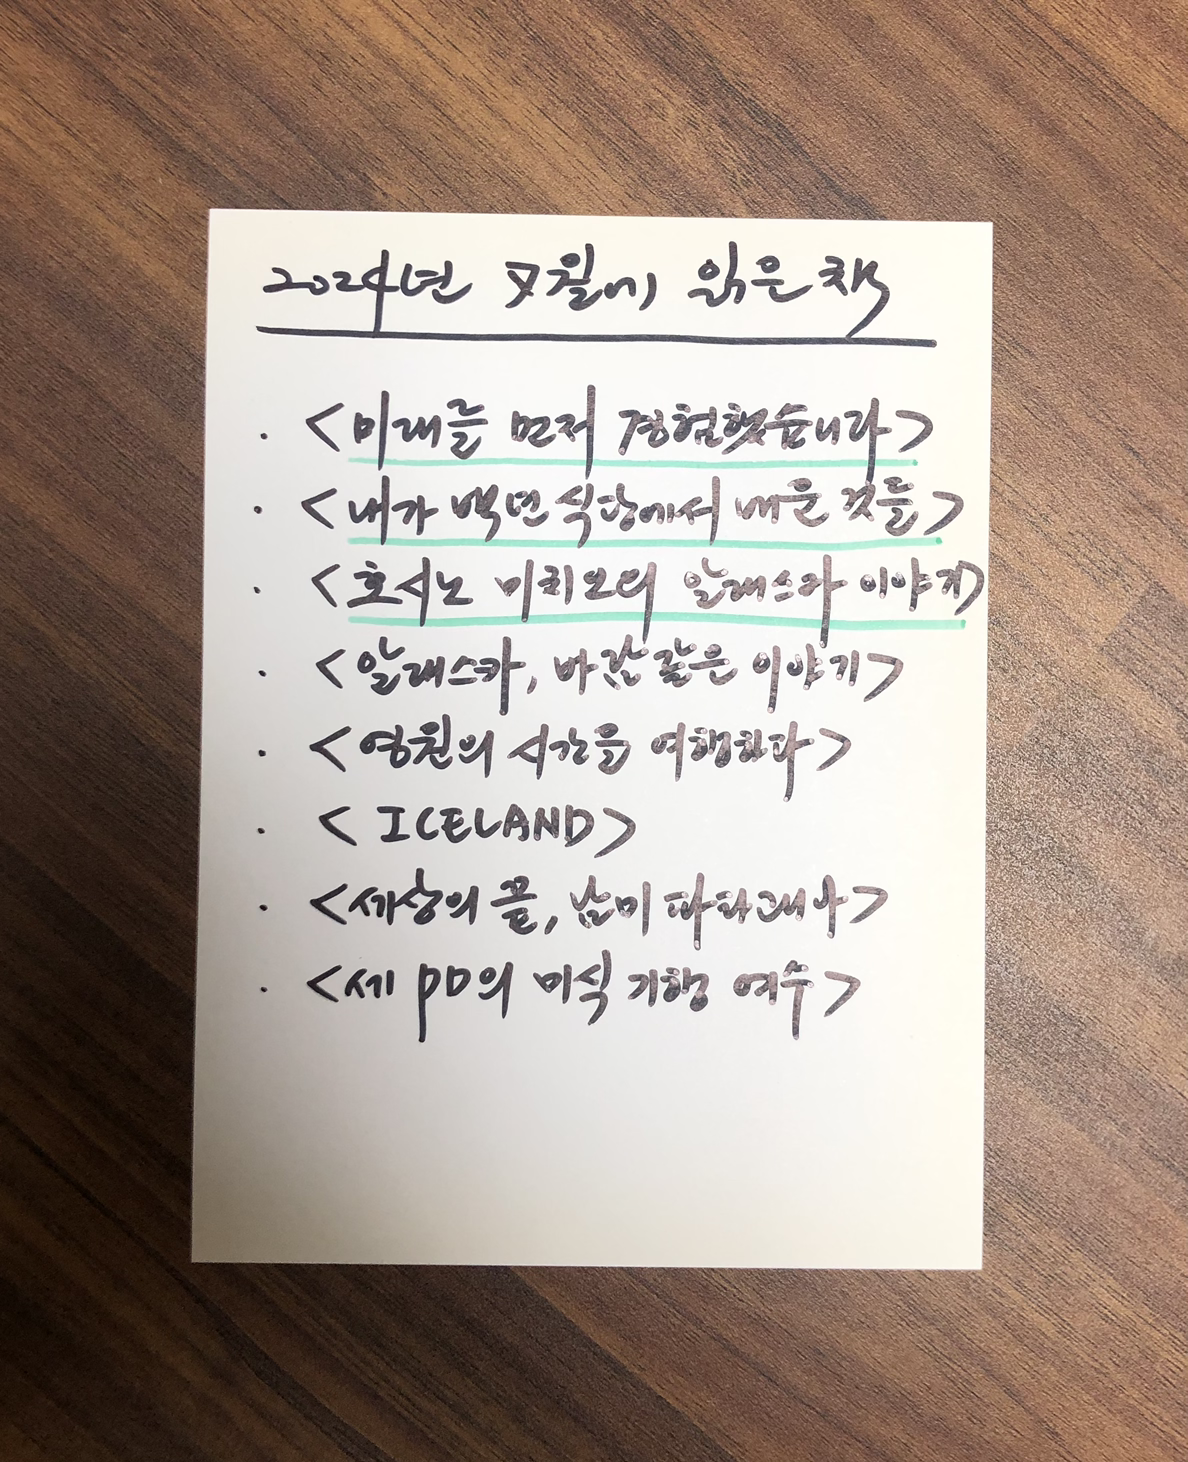 2024년 8월에 읽은 책
· <미래를 먼저 경험했습니다>
· <내가 백년식당에서 배운 것들>
· <호시노 미치오의 알래스카 이야기>
· <알래스카, 바람같은 이야기>
· <영원의 시간을 여행하다>
· < ICELAND>
· <세상의 끝, 남미 파타고니아>
· <세 PD의 미식 기행 여수>